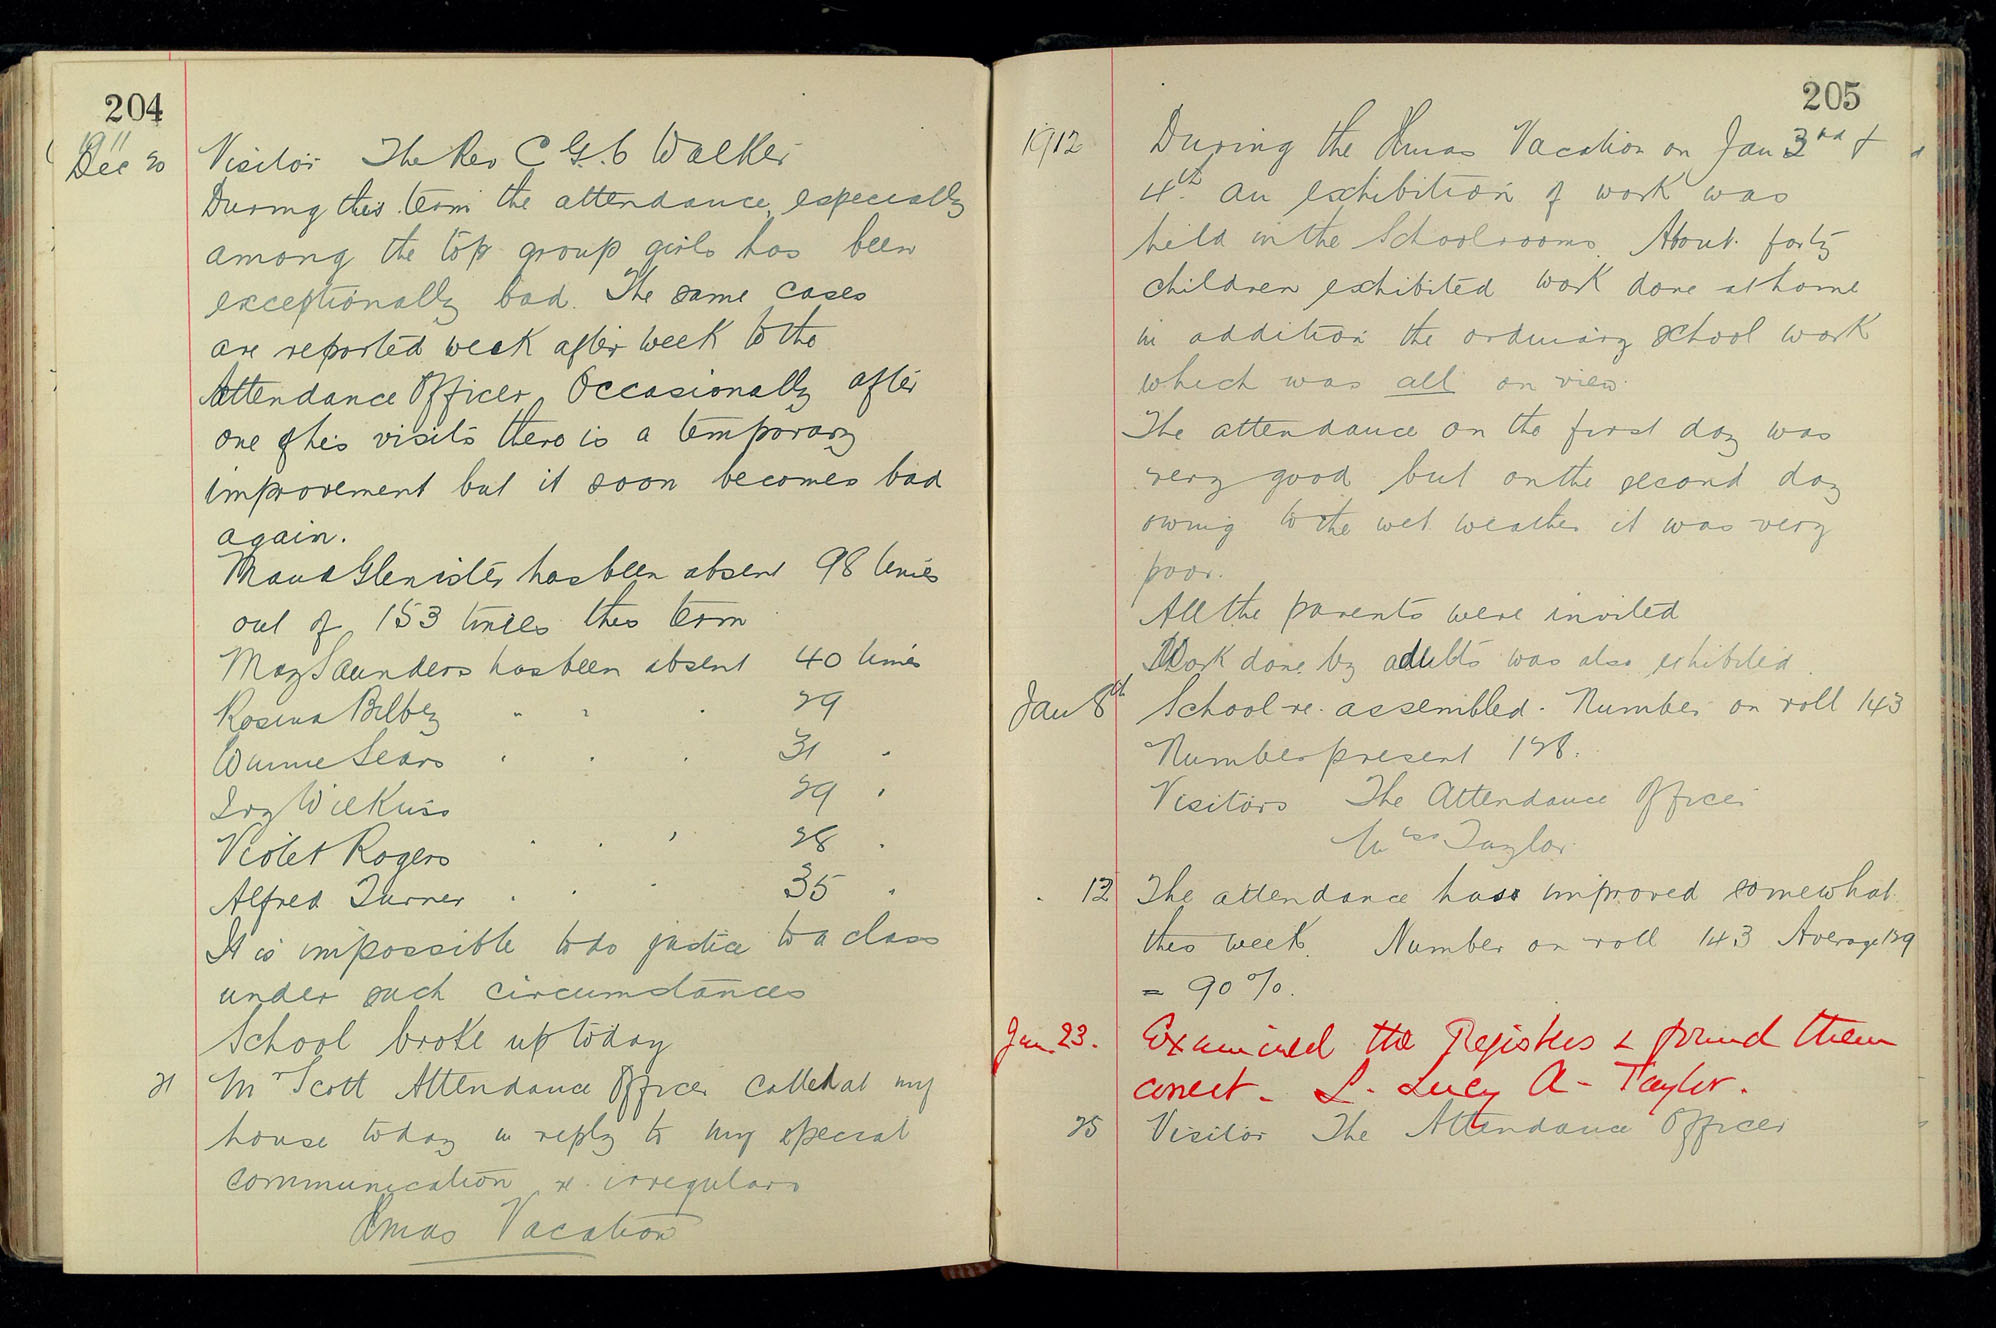 204
1911
Dec 20 Visitor The Rev C G. C Walker
During this term the attendance, especially
among the top group girls has been
exceptionally bad. The same cases
are reported week after week to the
Attendance Officer. Occasionally after
one of his visits there is a temporary
improvement but it soon becomes bad
again.
Maud Glenister has been absent 98 times
out of 153 times this term
May Saunders has been absent 40 times
Rosina Bilbey " " " 29
Winnie Sears " " " 31 "
Ivy Wilkins 29 "
Violet Rogers " " " 28 "
Alfred Turner " " " 35 "
It is impossible to do justice to a class
under such circumstances
School broke up today
21 Mr Scott Attendance Officer called at my
house today in reply to my special
communication re irregulars
Xmas Vacation
205
1912 During the Xmas Vacation on Jan 3rd &
4th an exhibition of work was
held in the Schoolrooms. About forty
children exhibited work done at home
in addition the ordinary school work
which was all on view.
The attendance on the first day was
very good but on the second day
owing to the wet weather it was very
poor.
All the parents were invited
Work done by adults was also exhibited.
Jan 8th School re-assembled. Number on roll 143
Number present 128.
Visitors The Attendance Officer
Miss Taylor
" 12 The attendance has improved somewhat
this week. Number on roll 143 Average 129
= 90%.
Jan. 23. Examined the Registers & found them
correct - L. Lucy A - Taylor.
25 Visitor The Attendance Officer